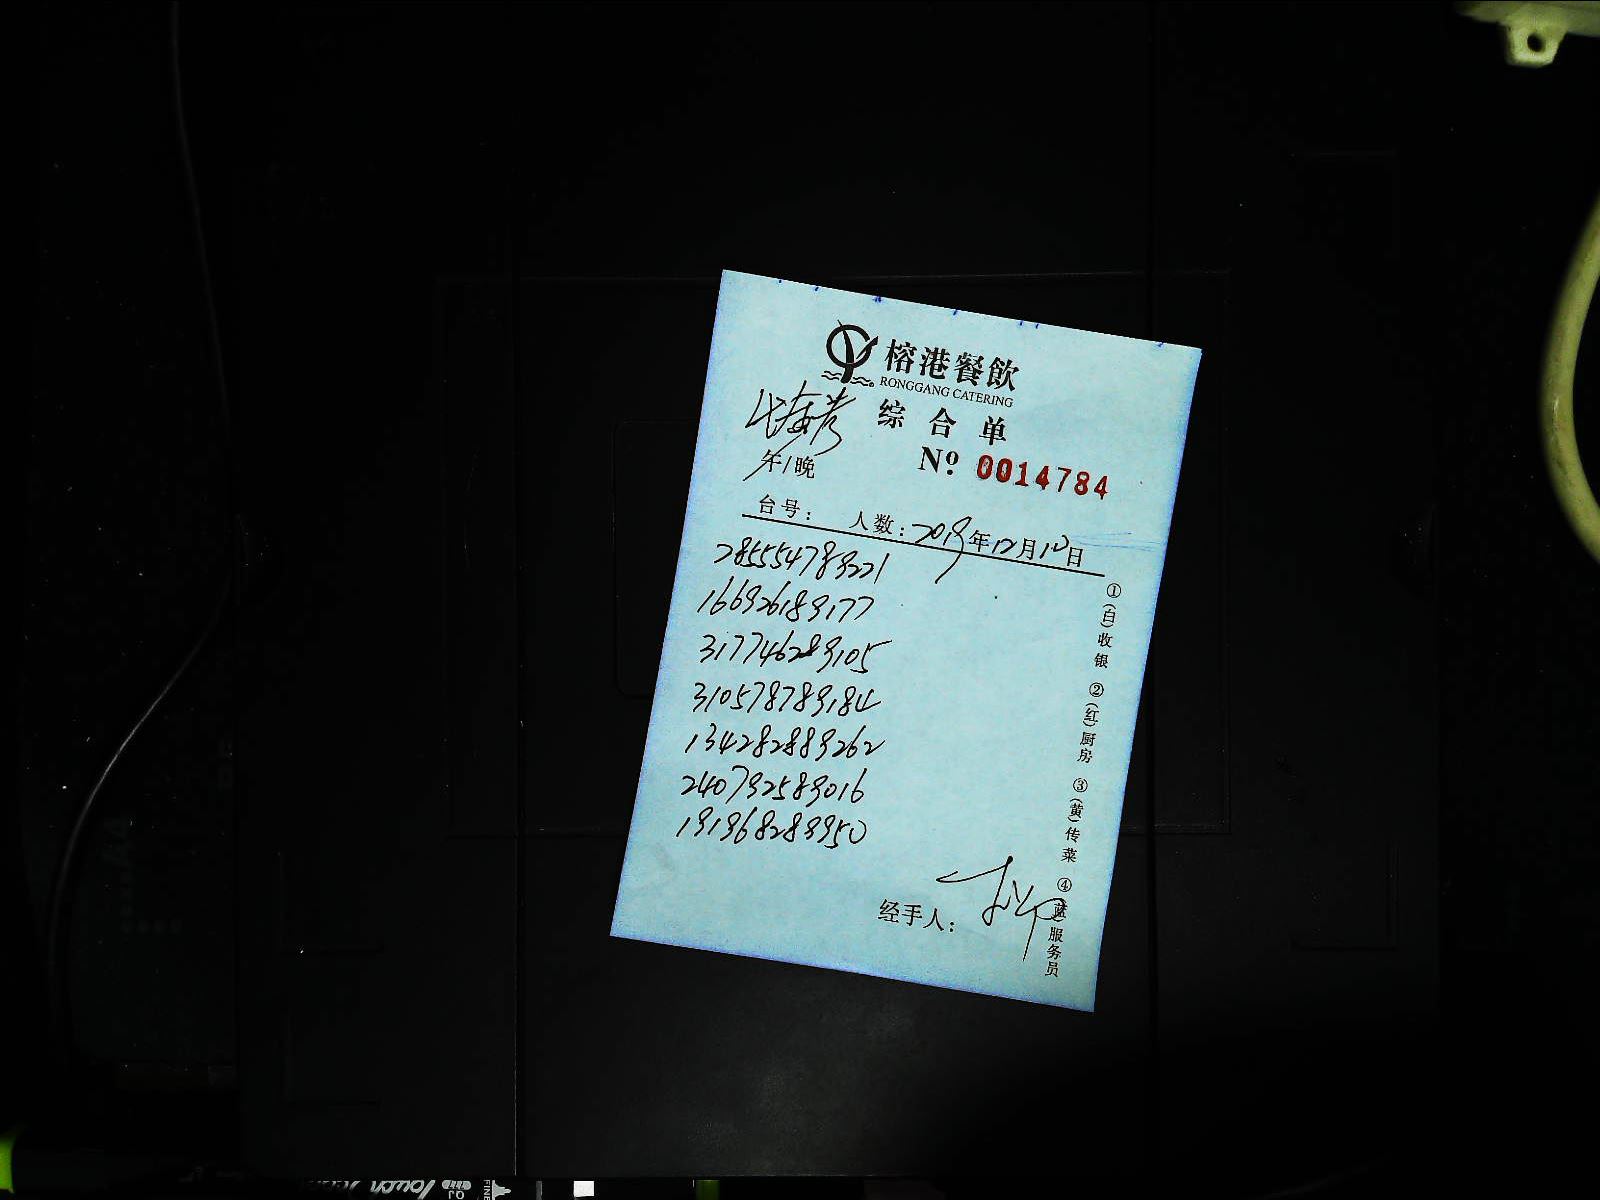 榕港餐飲
RONGGANG CATERING
综合单
午/晚
Nº 0014784
台号: 人数: 2019年12月10日
285554789221
166926189177
317746289105
310578789184
134282889262
240792589016
191968289950
经手人:
①(白)收银 ②(红)厨房 ③(黄)传菜 ④(蓝)服务员